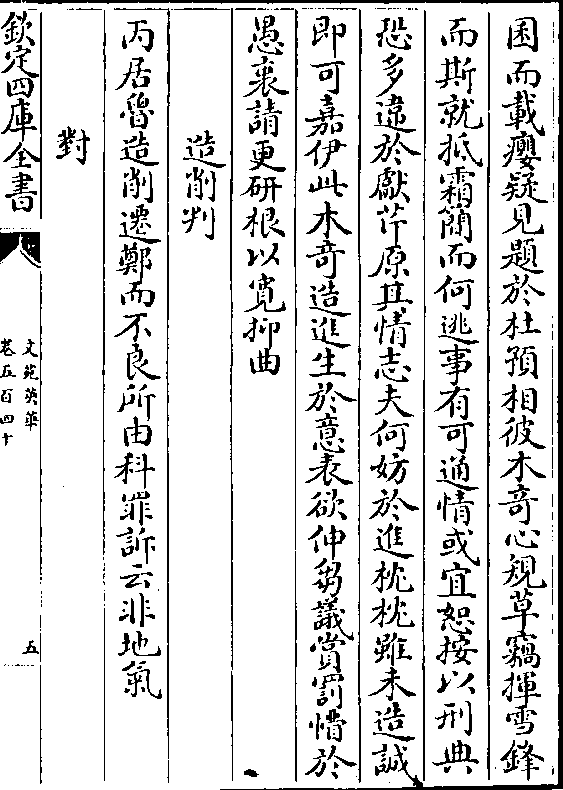 困而載癭疑見題於杜預相彼木竒心規草竊揮雪鋒
而斯就抵霜簡而何逃事有可通情或宜恕按以刑典
恐多違於獻芹原其情志夫何妨於進枕枕雖未造誠
即可嘉伊此木竒造進生於意表欲伸芻議賞罰懵於
愚衷請更研根以寛抑曲
造削判
丙居魯造削遷鄭而不良所由科罪訴云非地氣
對
欽定四庫全書
文苑英華
卷五百四十
五